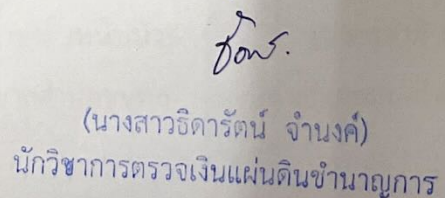 (นางสาวธิดารัตน์ จำนงค์)
นักวิชาการตรวจเงินแผ่นดินชำนาญการ